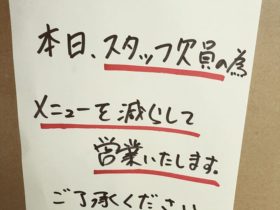 本日、スタッフ欠員の為
メニューを減らして
営業いたします。
ご了承ください